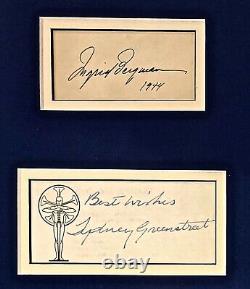 Ingrid Bergman
1944
Best Wishes
Sydney Greenstreet